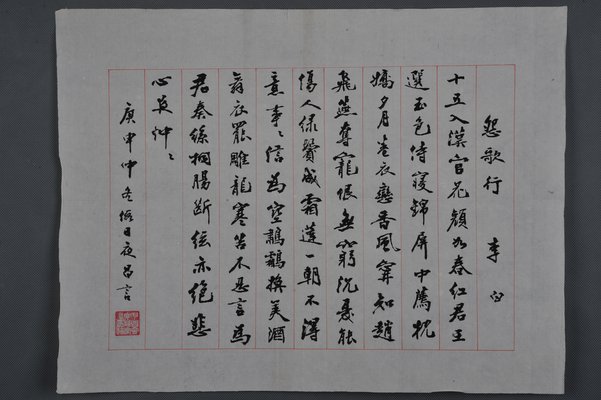 怨歌行 李白
十五入漢宮花顏如春紅君王
選玉色侍寢錦屏中薦枕
嬌夕月卷衣戀香風寧知趙
飛燕奪寵恨無窮沉憂能
傷人綠鬢成霜蓬一朝不得
意事々信為空鷫鸘換美酒
舞衣罷雕龍寒苦不忍言為
君奏絲桐腸斷弦亦絕悲
心夜忡々
庚申中冬日夜昌言